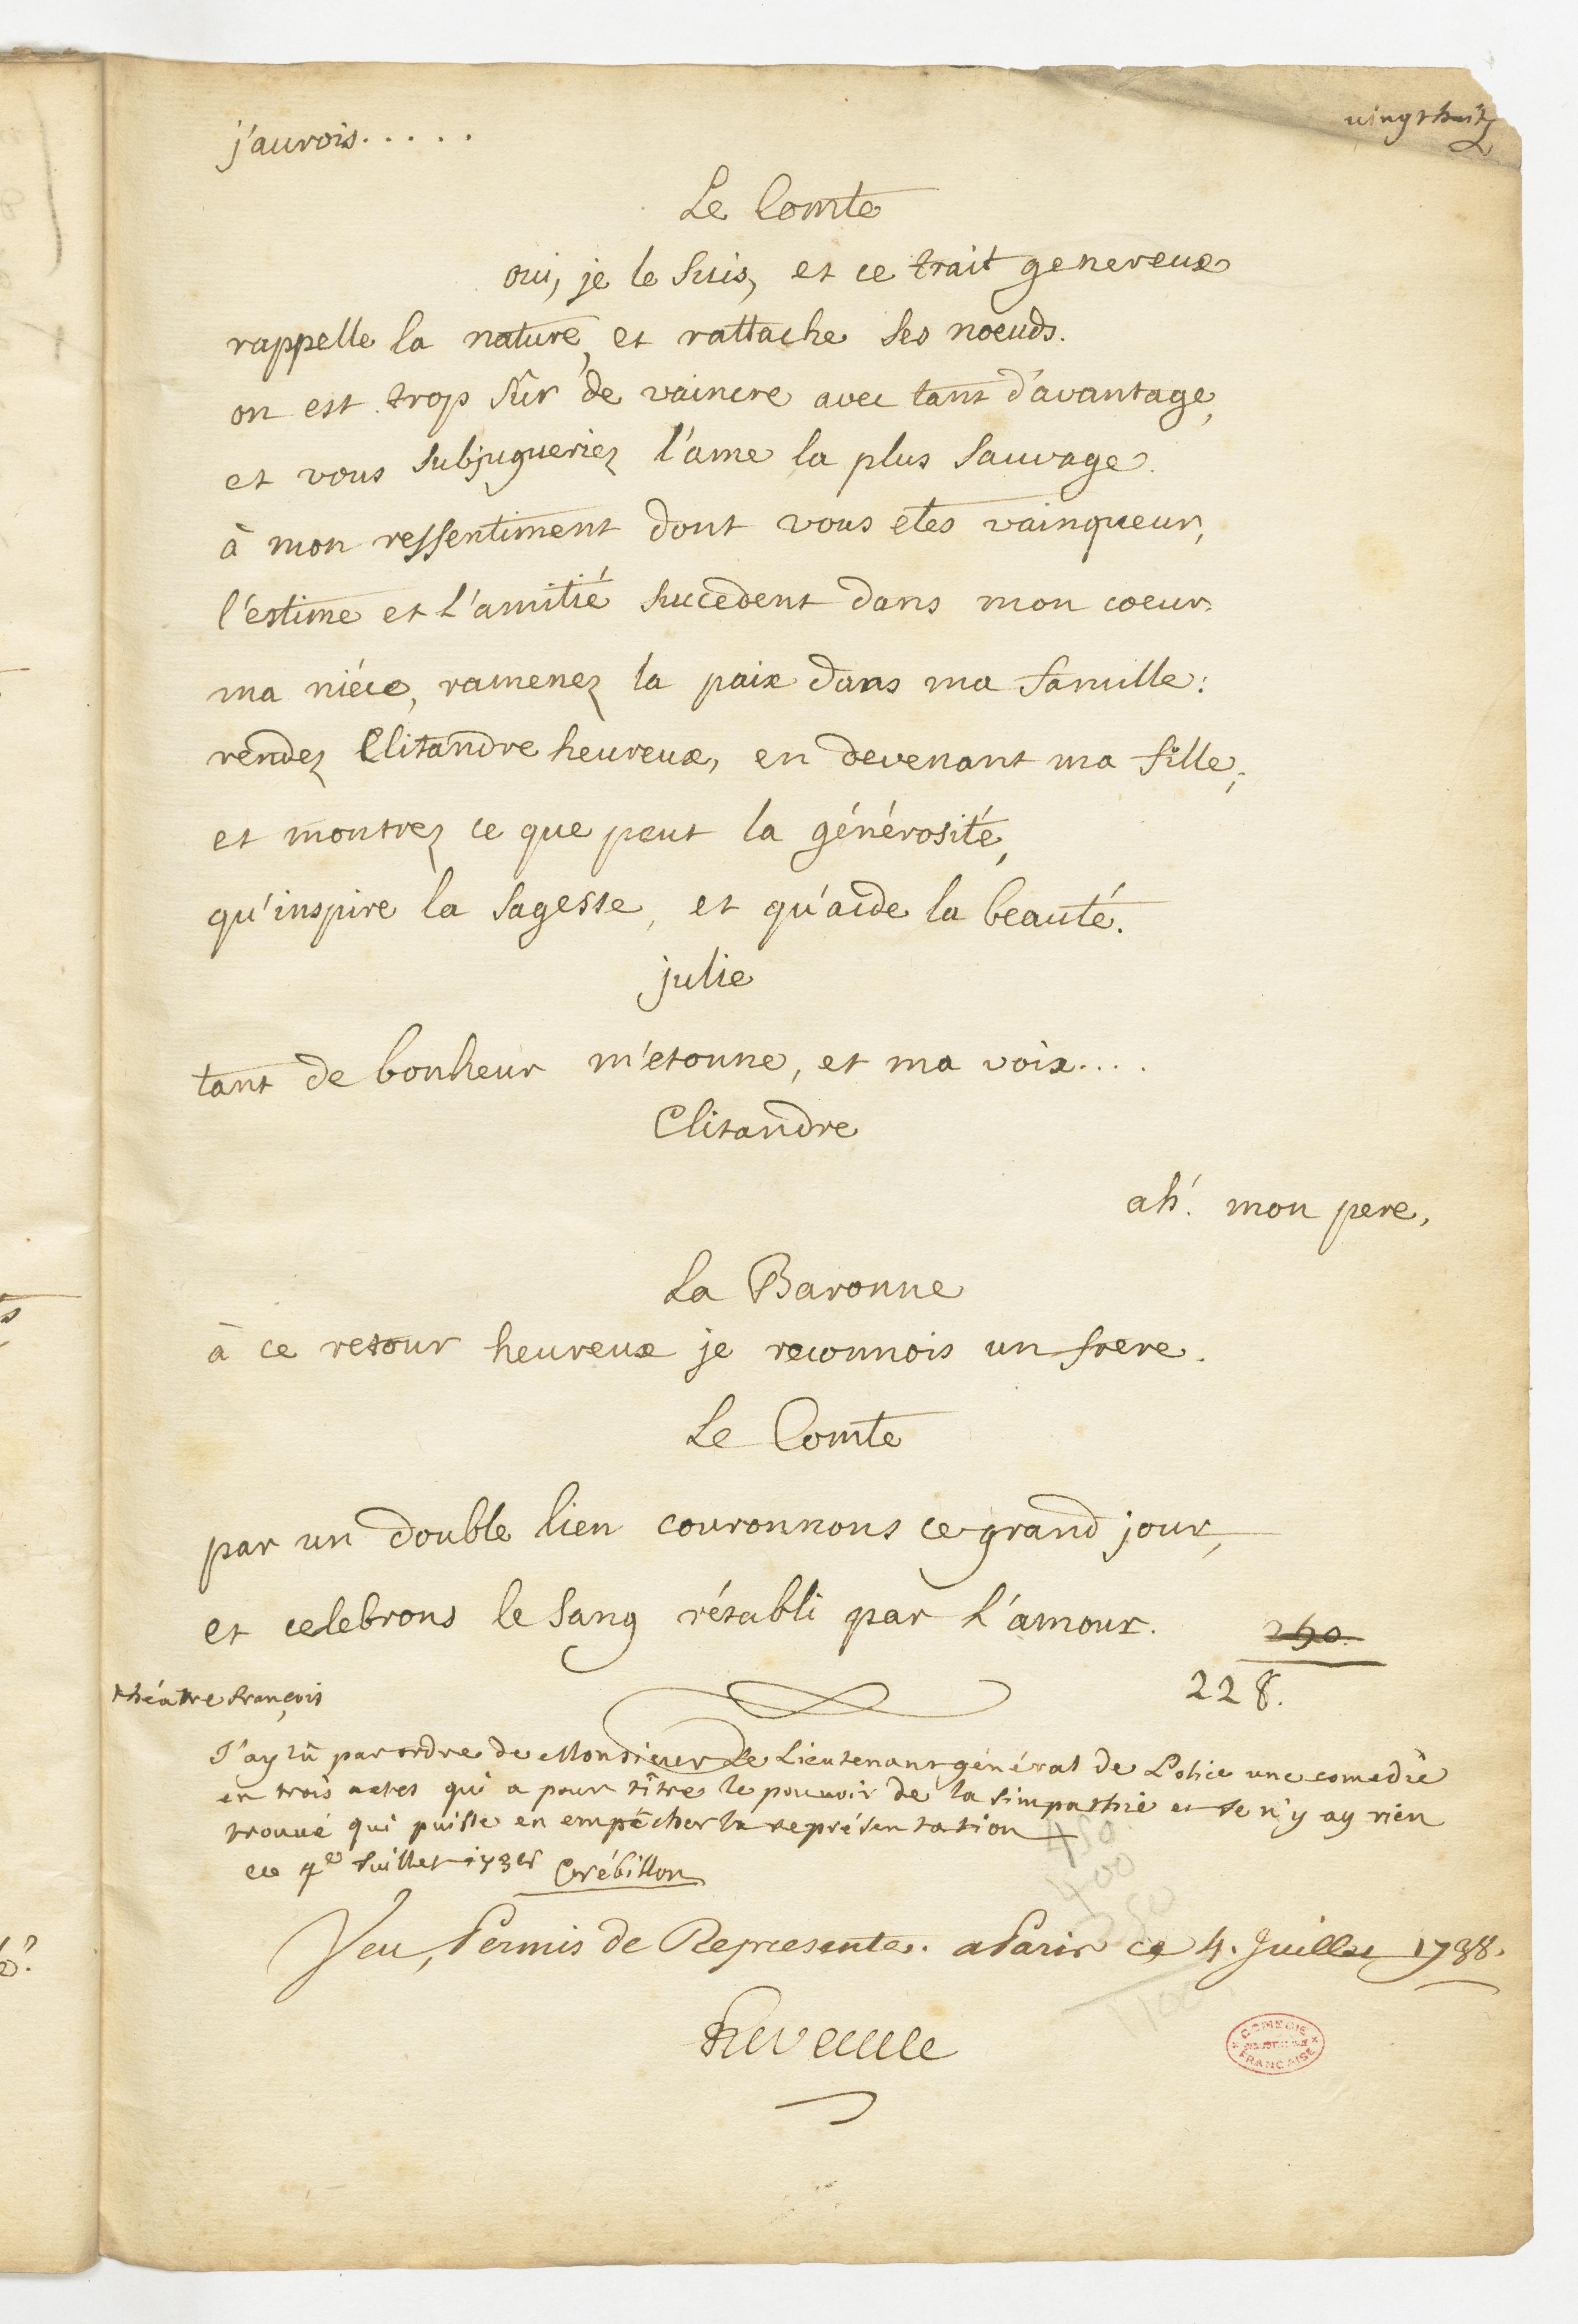 vingt huit
j'aurois.....
Le Comte
oui, je le suis, et ce trait genereux
rappelle la nature, et rattache ses noeuds.
on est trop sûr de vaincre avec tant d'avantage,
et vous subjugueriez l'ame la plus sauvage.
à mon ressentiment dont vous etes vainqueur,
l'estime et l'amitié succedent dans mon coeur.
ma niéce, ramenez la paix dans ma famille:
rendez Clitandre heureux, en devenant ma fille;
et montrez ce que peut la générosité,
qu'inspire la sagesse, et qu'aide la beauté.
julie
tant de bonheur m'etonne, et ma voix....
Clitandre
ah! mon pere,
La Baronne
à ce retour heureux je reconnois un frere.
Le Comte
par un double lien couronnons ce grand jour,
et celebrons le sang rétabli par l'amour.
228.
théatre françois
J'ay lû par ordre de Monsieur Le Lieutenant général de Police une comedie
en trois actes qui a pour tître le pouvoir de la simpathie et je n'y ay rien
trouvé qui puisse en empêcher la représentation
ce 4e Juillet 1738 Crébillon
Veu, Permis de Representer. a Paris ce 4. Juillet 1738.
COMEDIE
FRANCAISE